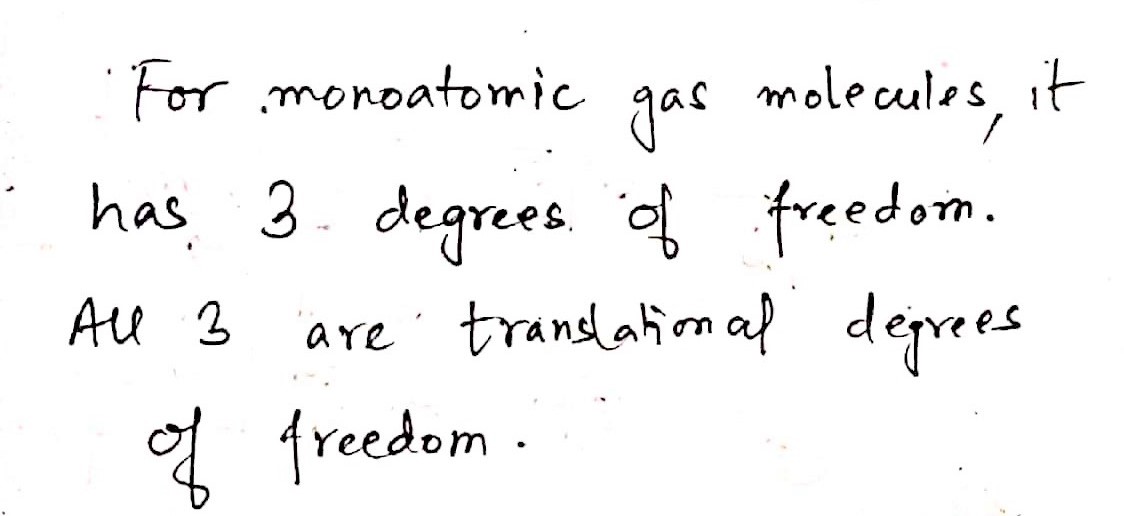 For monoatomic gas molecules, it
has 3 degrees of freedom.
All 3 are translational degrees
of freedom.